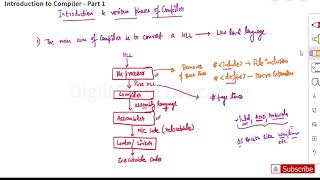 Introduction to Compiler - Part 1
Introduction & various phases of Compiler
1) The main aim of Compiler is to convert a HLL → Low level language
HLL
Pre processor
Pure HLL
Compiler
assembly language
Assembler
M/C code (relocatable)
Loader/Linker
Executable Code
Removes
# include → File inclusion
# define → Macro Expansion
# tags lines
Intel, AMD
OS
Windows
etc.
SUBSCRIBE